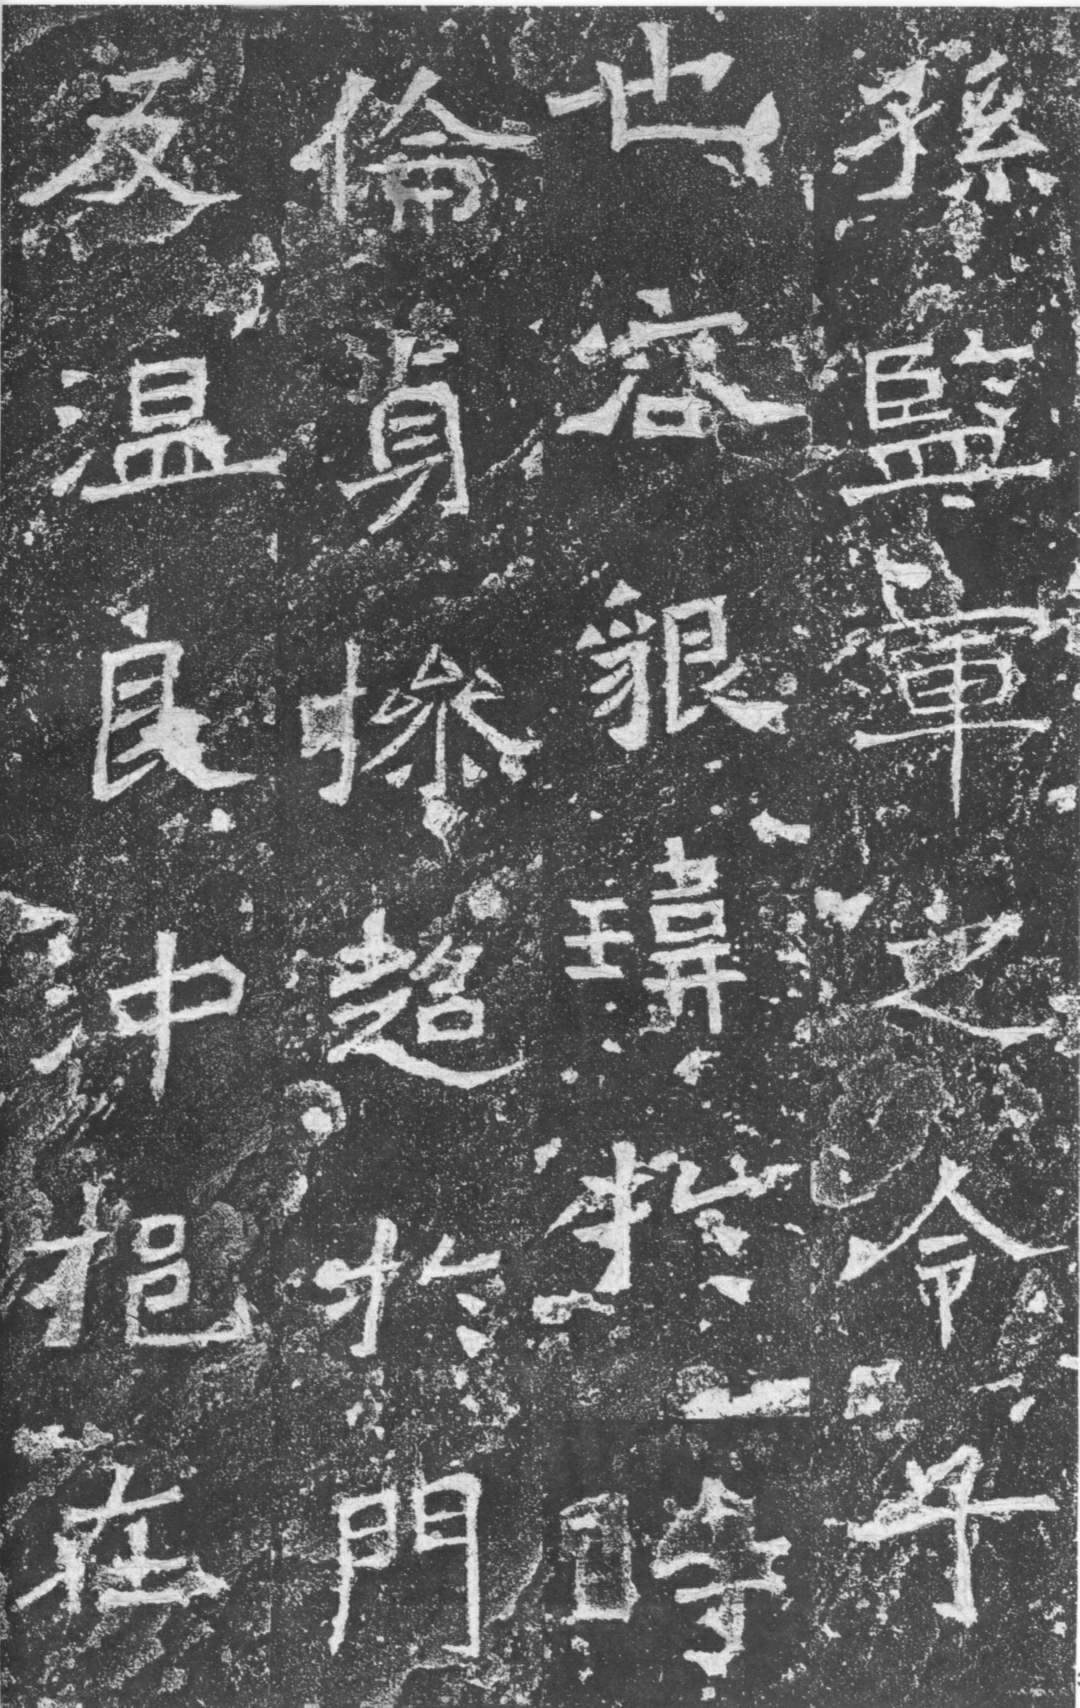 孫監軍之令子
也容貌瑋於時
倫貞操超於門
友温良沖挹在